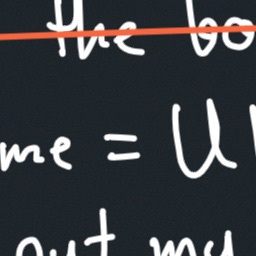 the bo
me = U
out my